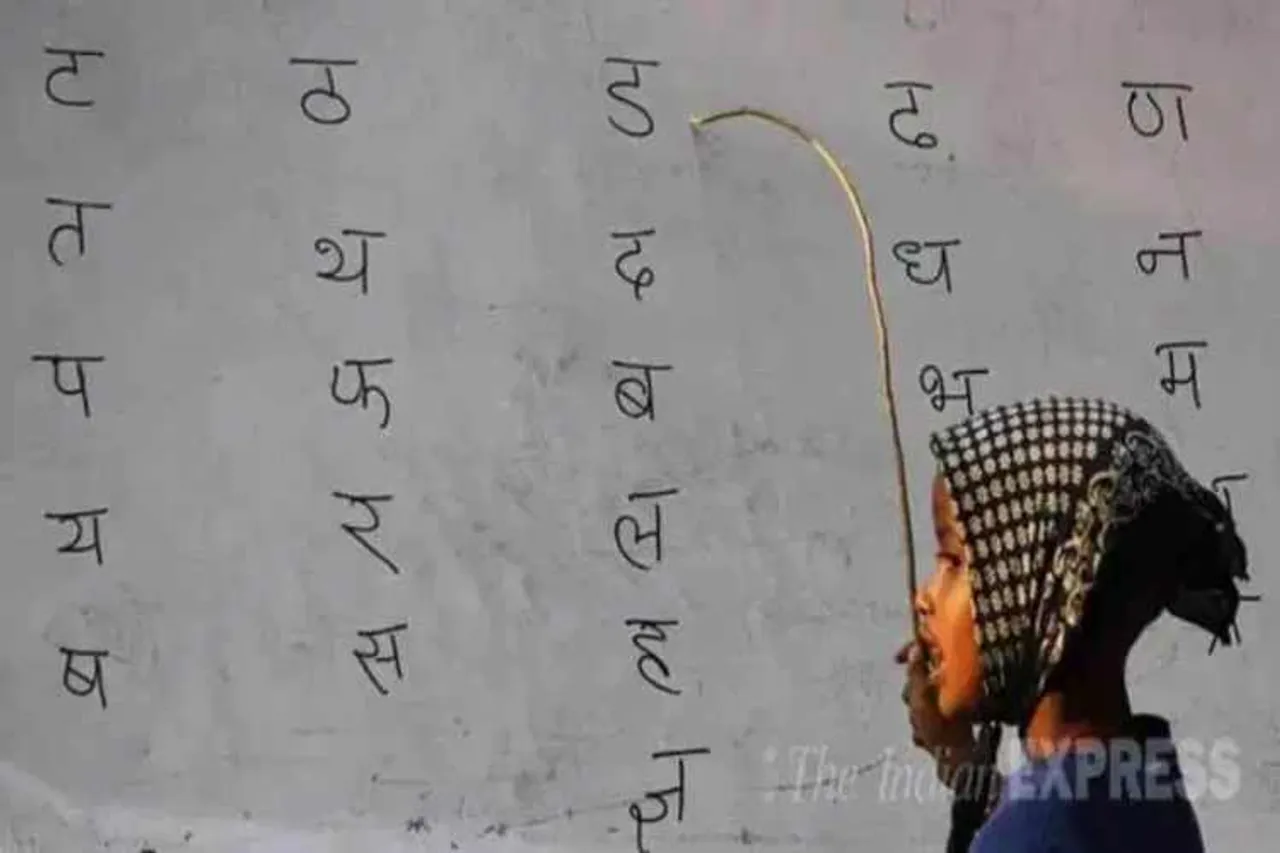 ट ठ ड ढ ण
त थ द ध न
प फ ब भ म
य ल
ष स ह
The Indian EXPRESS